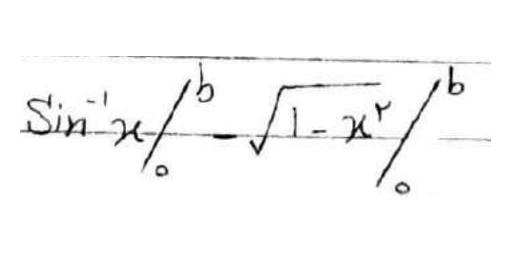 Sin⁻¹x/₀ᵇ - √(1-x²)/₀ᵇ